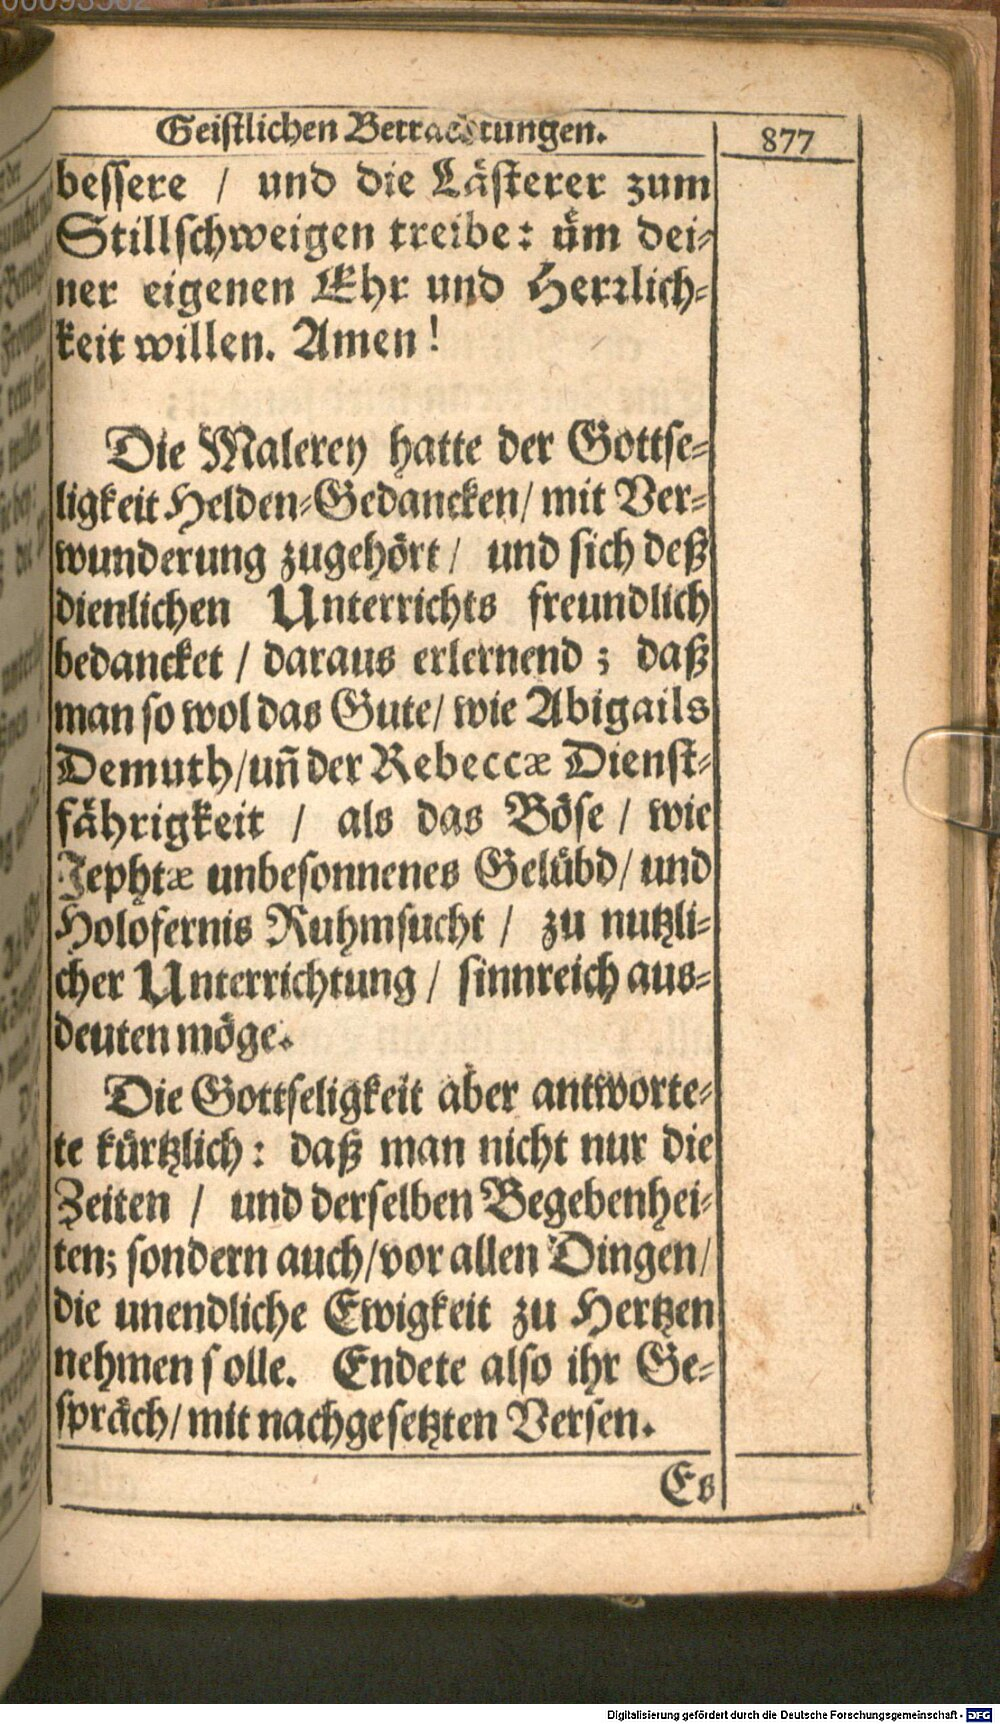 Geistlichen Betrachtungen.
877
bessere / und die Lästerer zum
Stillschweigen treibe: üm dei-
ner eigenen Ehr und Herrlich-
keit willen. Amen!
Die Malerey hatte der Gottse-
ligkeit Helden-Gedancken/ mit Ver-
wunderung zugehört/ und sich deß
dienlichen Unterrichts freundlich
bedancket / daraus erlernend; daß
man so wol das Gute/ wie Abigails
Demuth/ uñ der Rebeccæ Dienst-
fährigkeit / als das Böse / wie
Jephtæ unbesonnenes Gelübd/ und
Holofernis Ruhmsucht / zu nutzli-
cher Unterrichtung / sinnreich aus-
deuten möge.
Die Gottseligkeit aber antworte-
te kürtzlich: daß man nicht nur die
Zeiten / und derselben Begebenhei-
ten; sondern auch/ vor allen Dingen/
die unendliche Ewigkeit zu Hertzen
nehmen solle. Endete also ihr Ge-
spräch/ mit nachgesetzten Versen.
Es
Digitalisierung gefördert durch die Deutsche Forschungsgemeinschaft - DFG